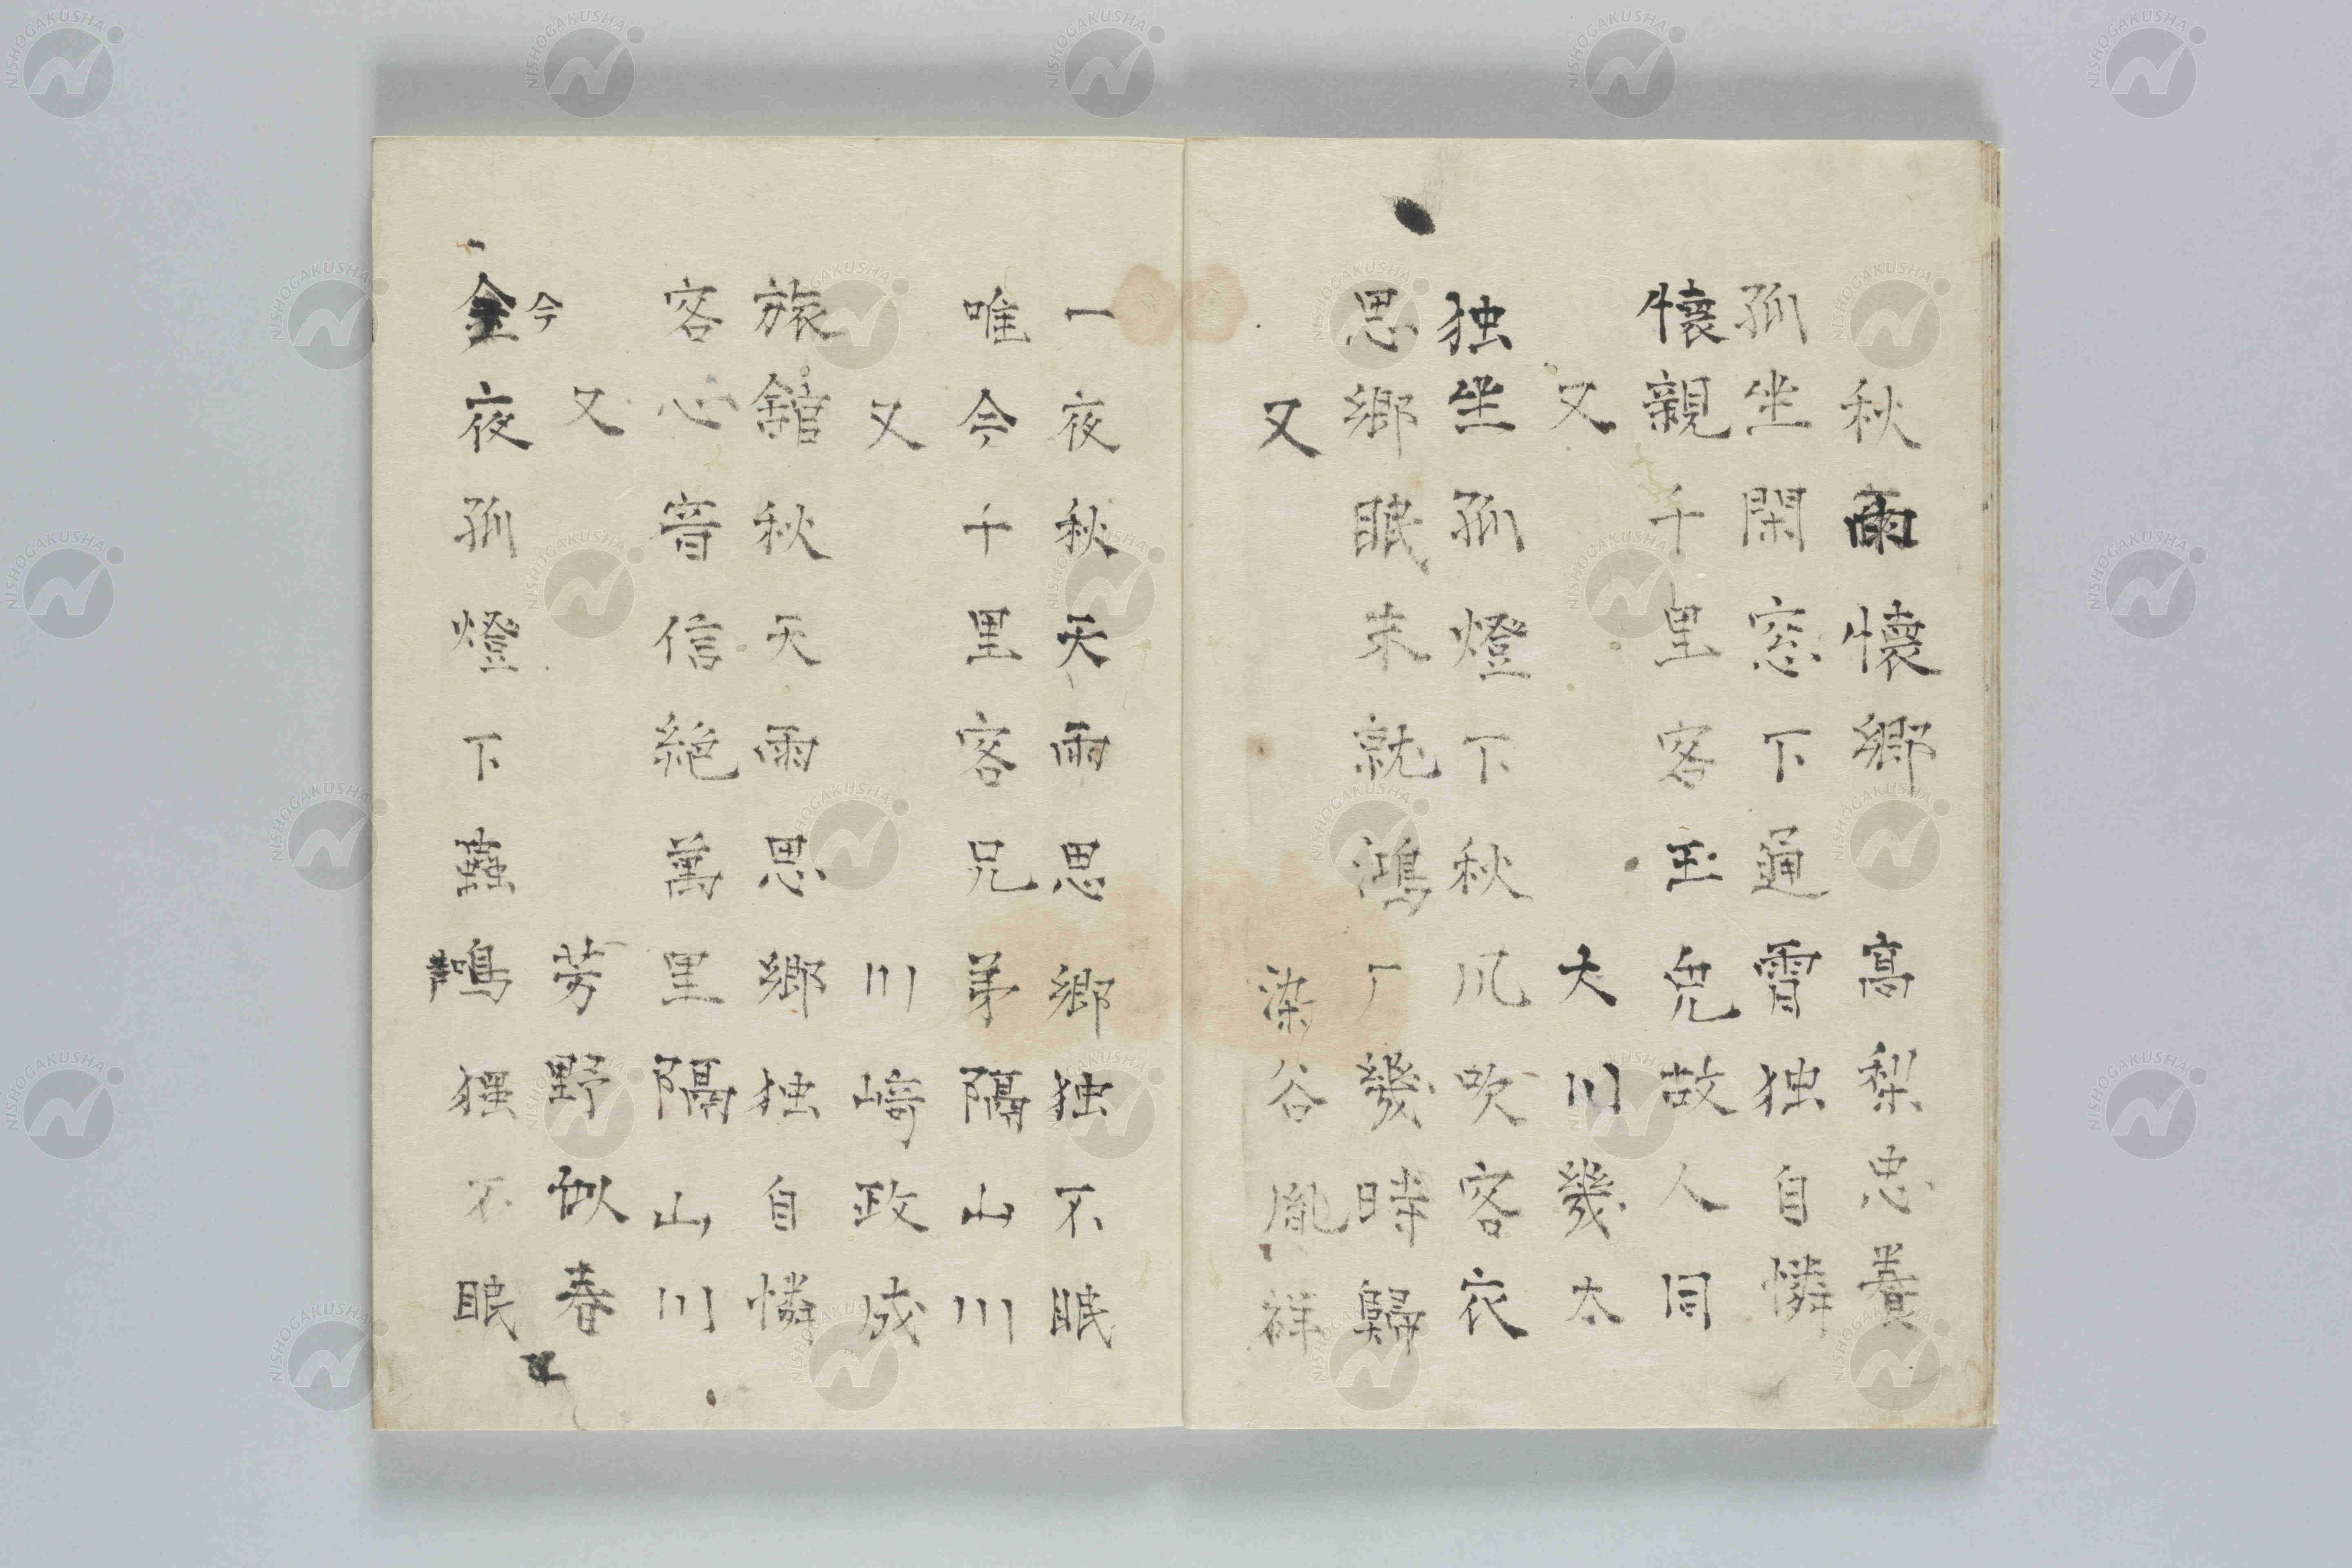 秋雨懐郷 高梨忠養
孤坐閑窓下通霄独自憐
懐親千里客至兔故人同
又 大川幾太
独坐孤燈下秋凨吹客衣
思郷眠未就鴻厂幾時歸
又 染谷胤祥
一夜秋天雨思郷独不眠
唯今千里客兄弟隔山川
又 川﨑政成
旅舘秋天雨思郷独自憐
客心音信絶萬里隔山川
又 芳野似春
今
夜孤燈下蛩鳴独不眠
NISHOGAKUSHA